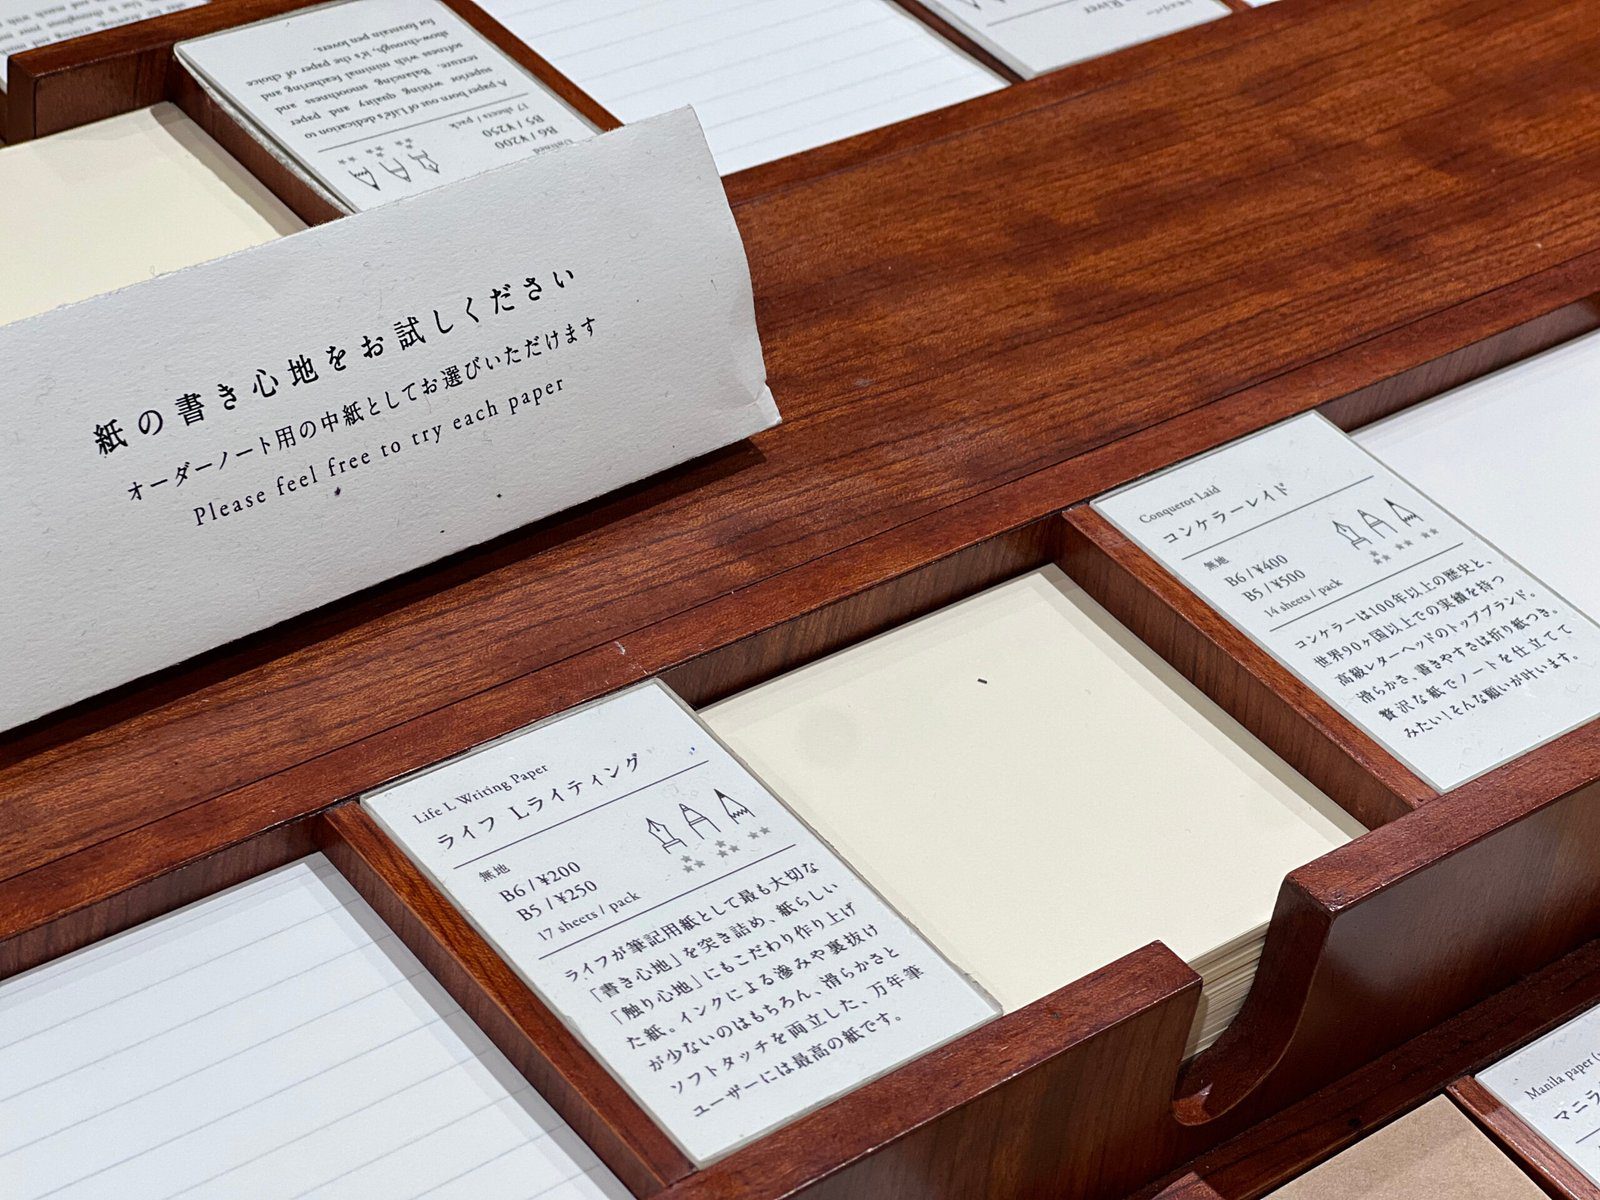 A paper born out of Life's dedication to
superior writing quality and paper
texture. Balancing smoothness and
softness with minimal feathering and
show-through, it's the paper of choice
for fountain pen lovers.
B6 / ¥200
B5 / ¥250
17 sheets / pack
River
紙の書き心地をお試しください
オーダーノート用の中紙としてお選びいただけます
Please feel free to try each paper
Conqueror Laid
コンケラーレイド
無地
B6 / ¥400
B5 / ¥500
14 sheets / pack
コンケラーは100年以上の歴史と、
世界90ヶ国以上での実績を持つ
高級レターヘッドのトップブランド。
滑らかさ、書きやすさは折り紙つき。
贅沢な紙でノートを仕立てて
みたい！そんな願いが叶います。
Life L Writing Paper
ライフ Lライティング
無地
B6 / ¥200
B5 / ¥250
17 sheets / pack
ライフが筆記用紙として最も大切な
「書き心地」を突き詰め、紙らしい
「触り心地」にもこだわり作り上げ
た紙。インクによる滲みや裏抜け
が少ないのはもちろん、滑らかさと
ソフトタッチを両立した、万年筆
ユーザーには最高の紙です。
Manila paper
マニラ